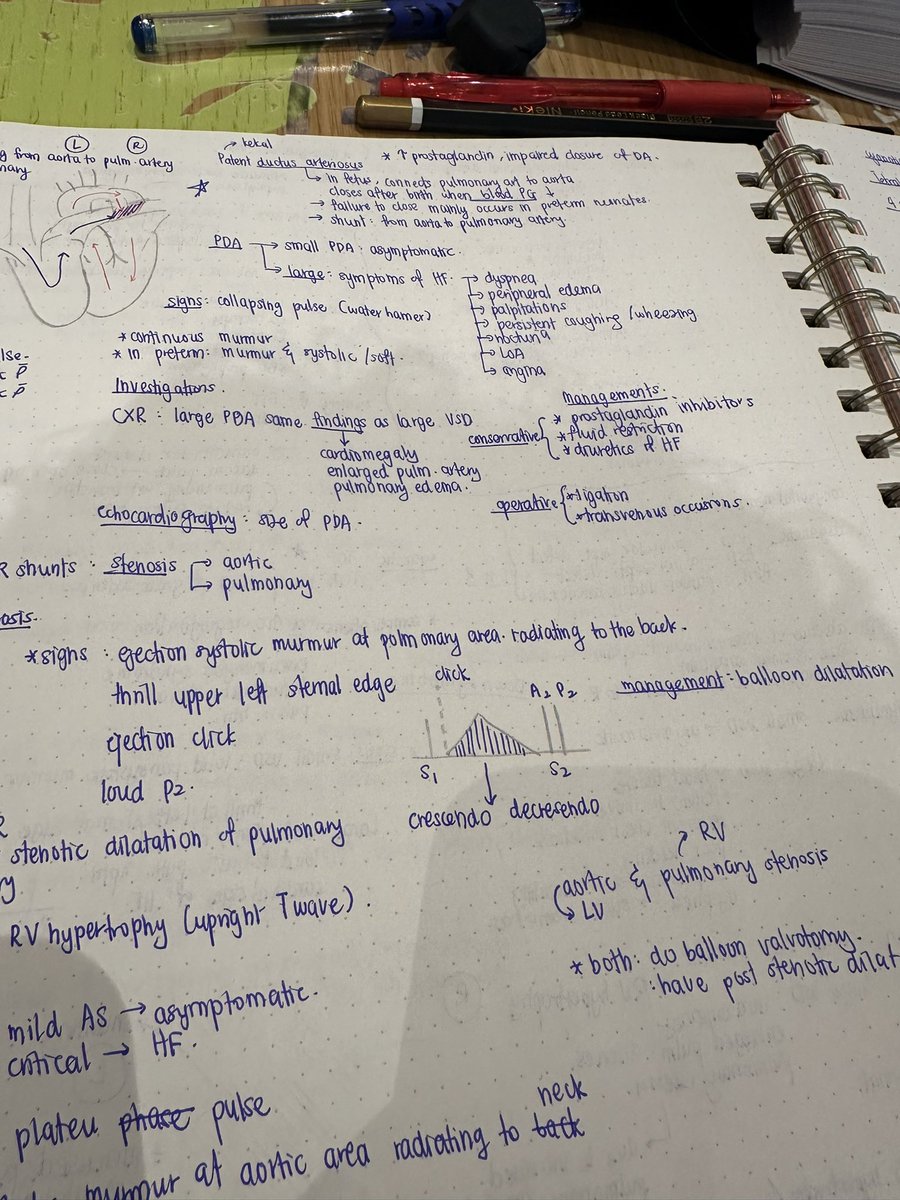 L R
from aorta to pulm. artery
→ kekal
Patent ductus arteriosus
* ↑ prostaglandin, impaired closure of DA.
↳ in fetus, connects pulmonary art to aorta
closes after birth when blood PG ↓
→ failure to close mainly occurs in preterm neonates.
→ shunt: from aorta to pulmonary artery.
PDA → small PDA: asymptomatic.
↳ large: symptoms of HF. → dyspnea
→ peripheral edema
→ palpitations
→ persistent coughing / wheezing
→
→ LOA
→ angina
signs: collapsing pulse (water hamer)
* continuous murmur
* in preterm: murmur & systolic / soft.
Investigations.
CXR: large PDA same findings as large VSD
↓
cardiomegaly
enlarged pulm. artery
pulmonary edema.
echocardiography: size of PDA.
managements.
conservative { * prostaglandin inhibitors
* fluid restriction
* diuretics if HF
operative { * ligation
* transvenous occusions.
R shunts: stenosis → aortic
↳ pulmonary
osis.
* signs: ejection systolic murmur at pulmonary area. radiating to the back.
thrill upper left sternal edge
ejection click
loud P2.
click
A2 P2
S1 S2
crescendo decresendo
management: balloon dilatation
stenotic dilatation of pulmonary
y
RV hypertrophy (upright T wave).
→ RV
aortic & pulmonary stenosis
→ LV
* both: do balloon valvotomy.
: have post stenotic dilat
mild AS → asymptomatic.
critical → HF.
plateu phase pulse
neck
murmur at aortic area radiating to back